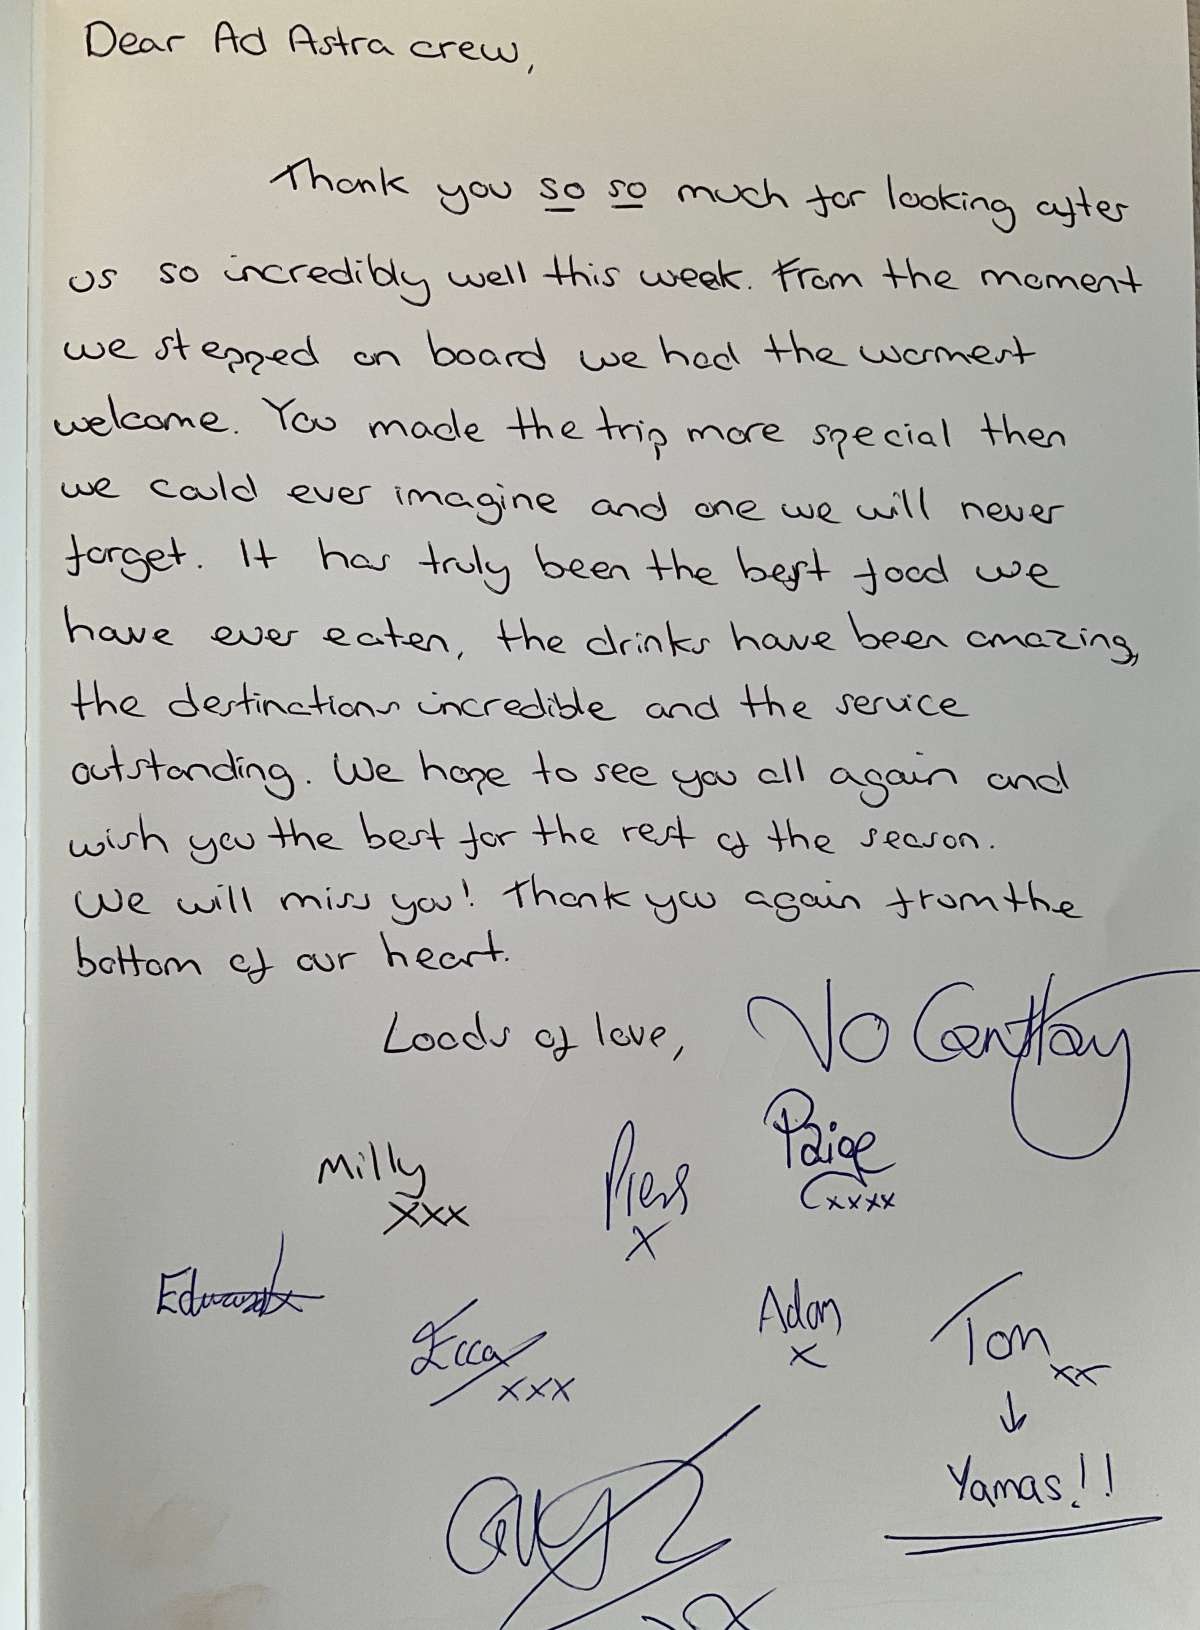 Dear Ad Astra crew,
Thank you so so much for looking after
us so incredibly well this week. From the moment
we stepped on board we had the warmest
welcome. You made the trip more special then
we could ever imagine and one we will never
forget. It has truly been the best food we
have ever eaten, the drinks have been amazing,
the destinations incredible and the service
outstanding. We hope to see you all again and
wish you the best for the rest of the season.
We will miss you! Thank you again from the
bottom of our heart.
Loads of love,
Milly
xxx
Piers
x
Paige
xxxx
Edward
Ecca
xxx
Adam
x
Tom
xx
↓
Yamas!!